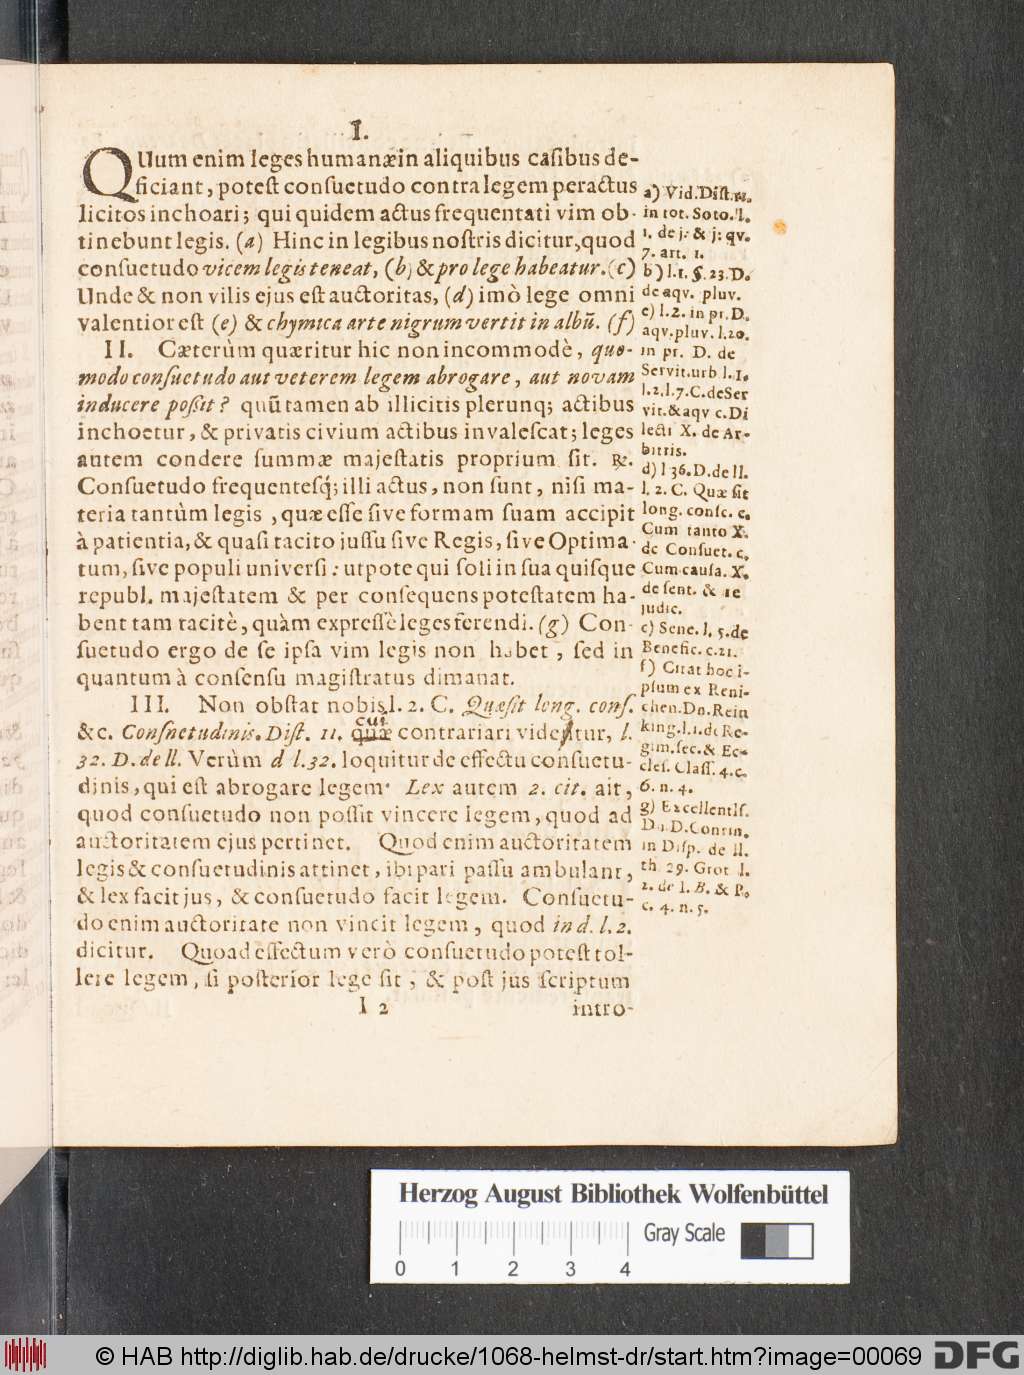 I.
QUum enim leges humanæ in aliquibus casibus de-
ficiant, potest consuetudo contra legem per actus
licitos inchoari; qui quidem actus frequentati vim ob-
tinebunt legis. (a) Hinc in legibus nostris dicitur, quod
consuetudo vicem legis teneat, (b) & pro lege habeatur. (c)
Unde & non vilis ejus est auctoritas, (d) imò lege omni
valentior est (e) & chymica arte nigrum vertit in albũ. (f)
II. Cæterùm quæritur hic non incommodè, quo-
modo consuetudo aut veterem legem abrogare, aut novam
inducere possit? quũ tamen ab illicitis plerunq; actibus
inchoetur, & privatis civium actibus invalescat; leges
autem condere summæ majestatis proprium sit. ℞.
Consuetudo frequentesq́; illi actus, non sunt, nisi ma-
teria tantùm legis, quæ esse sive formam suam accipit
à patientia, & quasi tacito jussu sive Regis, sive Optima-
tum, sive populi universi: utpote qui soli in sua quisque
republ. majestatem & per consequens potestatem ha-
bent tam tacitè, quàm expressè leges ferendi. (g) Con-
suetudo ergo de se ipsa vim legis non habet, sed in
quantum à consensu magistratus dimanat.
III. Non obstat nobis l. 2. C. Quæ sit long. cons.
cui
&c. Consnetudinis. Dist. 11. quæ contrariari videntur, l.
32. D. de ll. Verùm d l. 32. loquitur de effectu consuetu-
dinis, qui est abrogare legem. Lex autem 2. cit. ait,
quod consuetudo non possit vincere legem, quod ad
auctoritatem ejus pertinet. Quod enim auctoritatem
legis & consuetudinis attinet, ibi pari passu ambulant,
& lex facit jus, & consuetudo facit legem. Consuetu-
do enim auctoritate non vincit legem, quod in d. l. 2.
dicitur. Quoad effectum verò consuetudo potest tol-
lere legem, si posterior lege sit, & post jus scriptum
I 2 intro-
a) Vid. Dist. 11.
in tot. Soto. l.
1. de j. & j: qv.
7. art. 1.
b) l. 1. §. 23. D.
de aqv. pluv.
c) l. 2. in pr. D.
aqv. pluv. l. 20.
in pr. D. de
Servit. urb l. 1.
l. 2. l. 7. C. de Ser
vit. & aqv c. Di
lecti X. de Ar-
bitris.
d) l 36. D. de ll.
l. 2. C. Quæ sit
long. consc. c.
Cum tanto X.
de Consuet. c.
Cum causa. X.
de sent. & re
judic.
e) Sene. l. 5. de
Benefic. c. 21.
f) Citat hoc i-
psum ex Reni-
chen. Dn. Rein
king. l. 1. de Re-
gim. sec. & Ec-
cles. Class. 4. c.
6. n. 4.
g) Excellentis.
Dn. D. Conrin.
in Disp. de ll.
th. 29. Grot. l.
2. de I. B. & P.
c. 4. n. 5.
Herzog August Bibliothek Wolfenbüttel
Gray Scale
0 1 2 3 4
© HAB http://diglib.hab.de/drucke/1068-helmst-dr/start.htm?image=00069
DFG